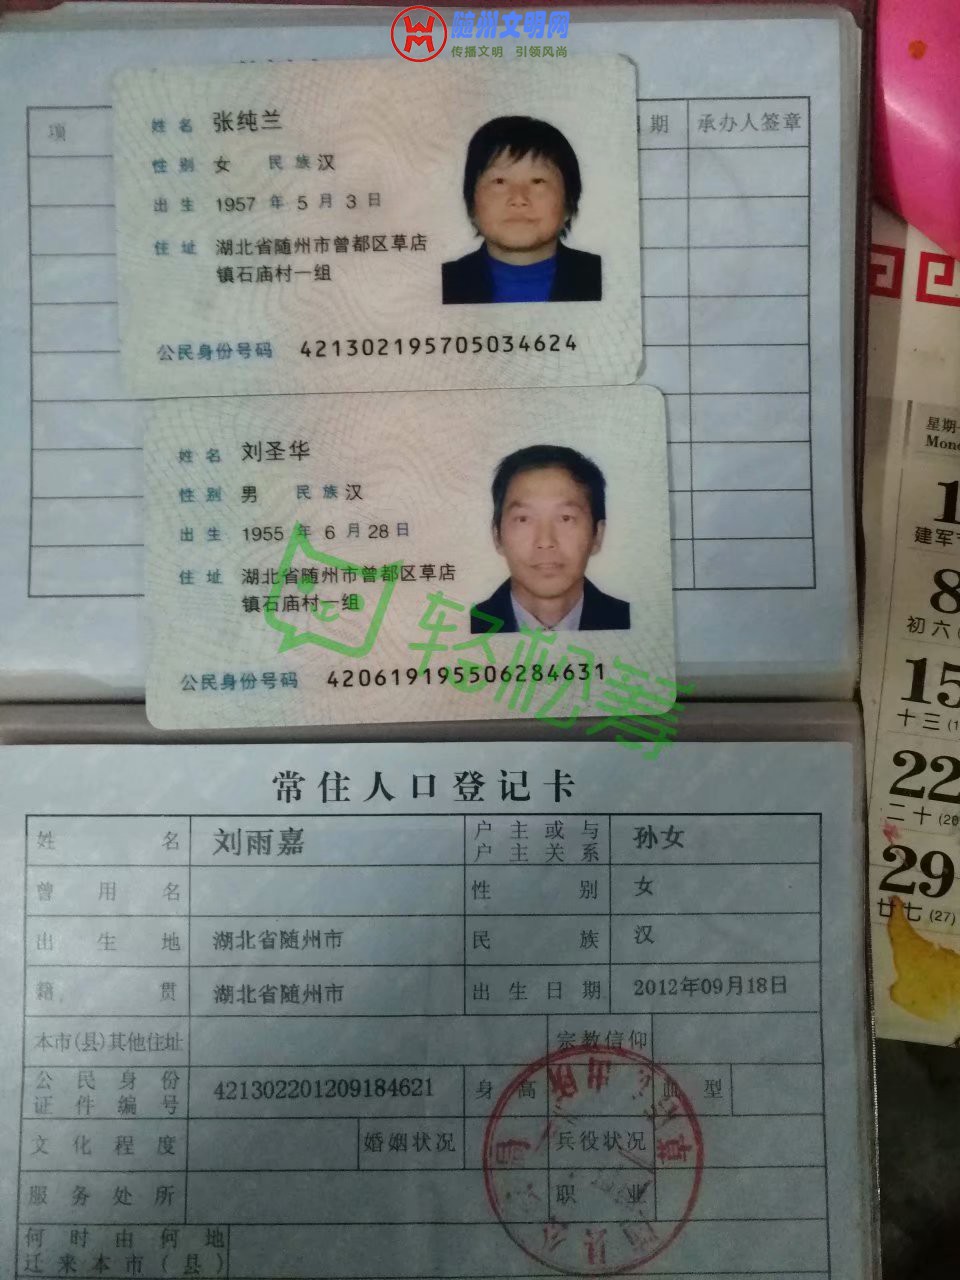 随州文明网
传播文明 引领风尚
项
日期
承办人签章
姓名 张纯兰
性别 女 民族 汉
出生 1957 年 5 月 3 日
住址 湖北省随州市曾都区草店
镇石庙村一组
公民身份号码 421302195705034624
姓名 刘圣华
性别 男 民族 汉
出生 1955 年 6 月 28 日
住址 湖北省随州市曾都区草店
镇石庙村一组
公民身份号码 420619195506284631
轻松筹
常住人口登记卡
姓名 刘雨嘉 户主或与户主关系 孙女
曾用名 性别 女
出生地 湖北省随州市 民族 汉
籍贯 湖北省随州市 出生日期 2012年09月18日
本市(县)其他住址 宗教信仰
公民身份证件编号 421302201209184621 身高 血型
文化程度 婚姻状况 兵役状况
服务处所 职业
何时由何地
迁来本市(县)
星期
Mon
1
建军
8
初六
15
十三
22
二十
29
廿七 (27)